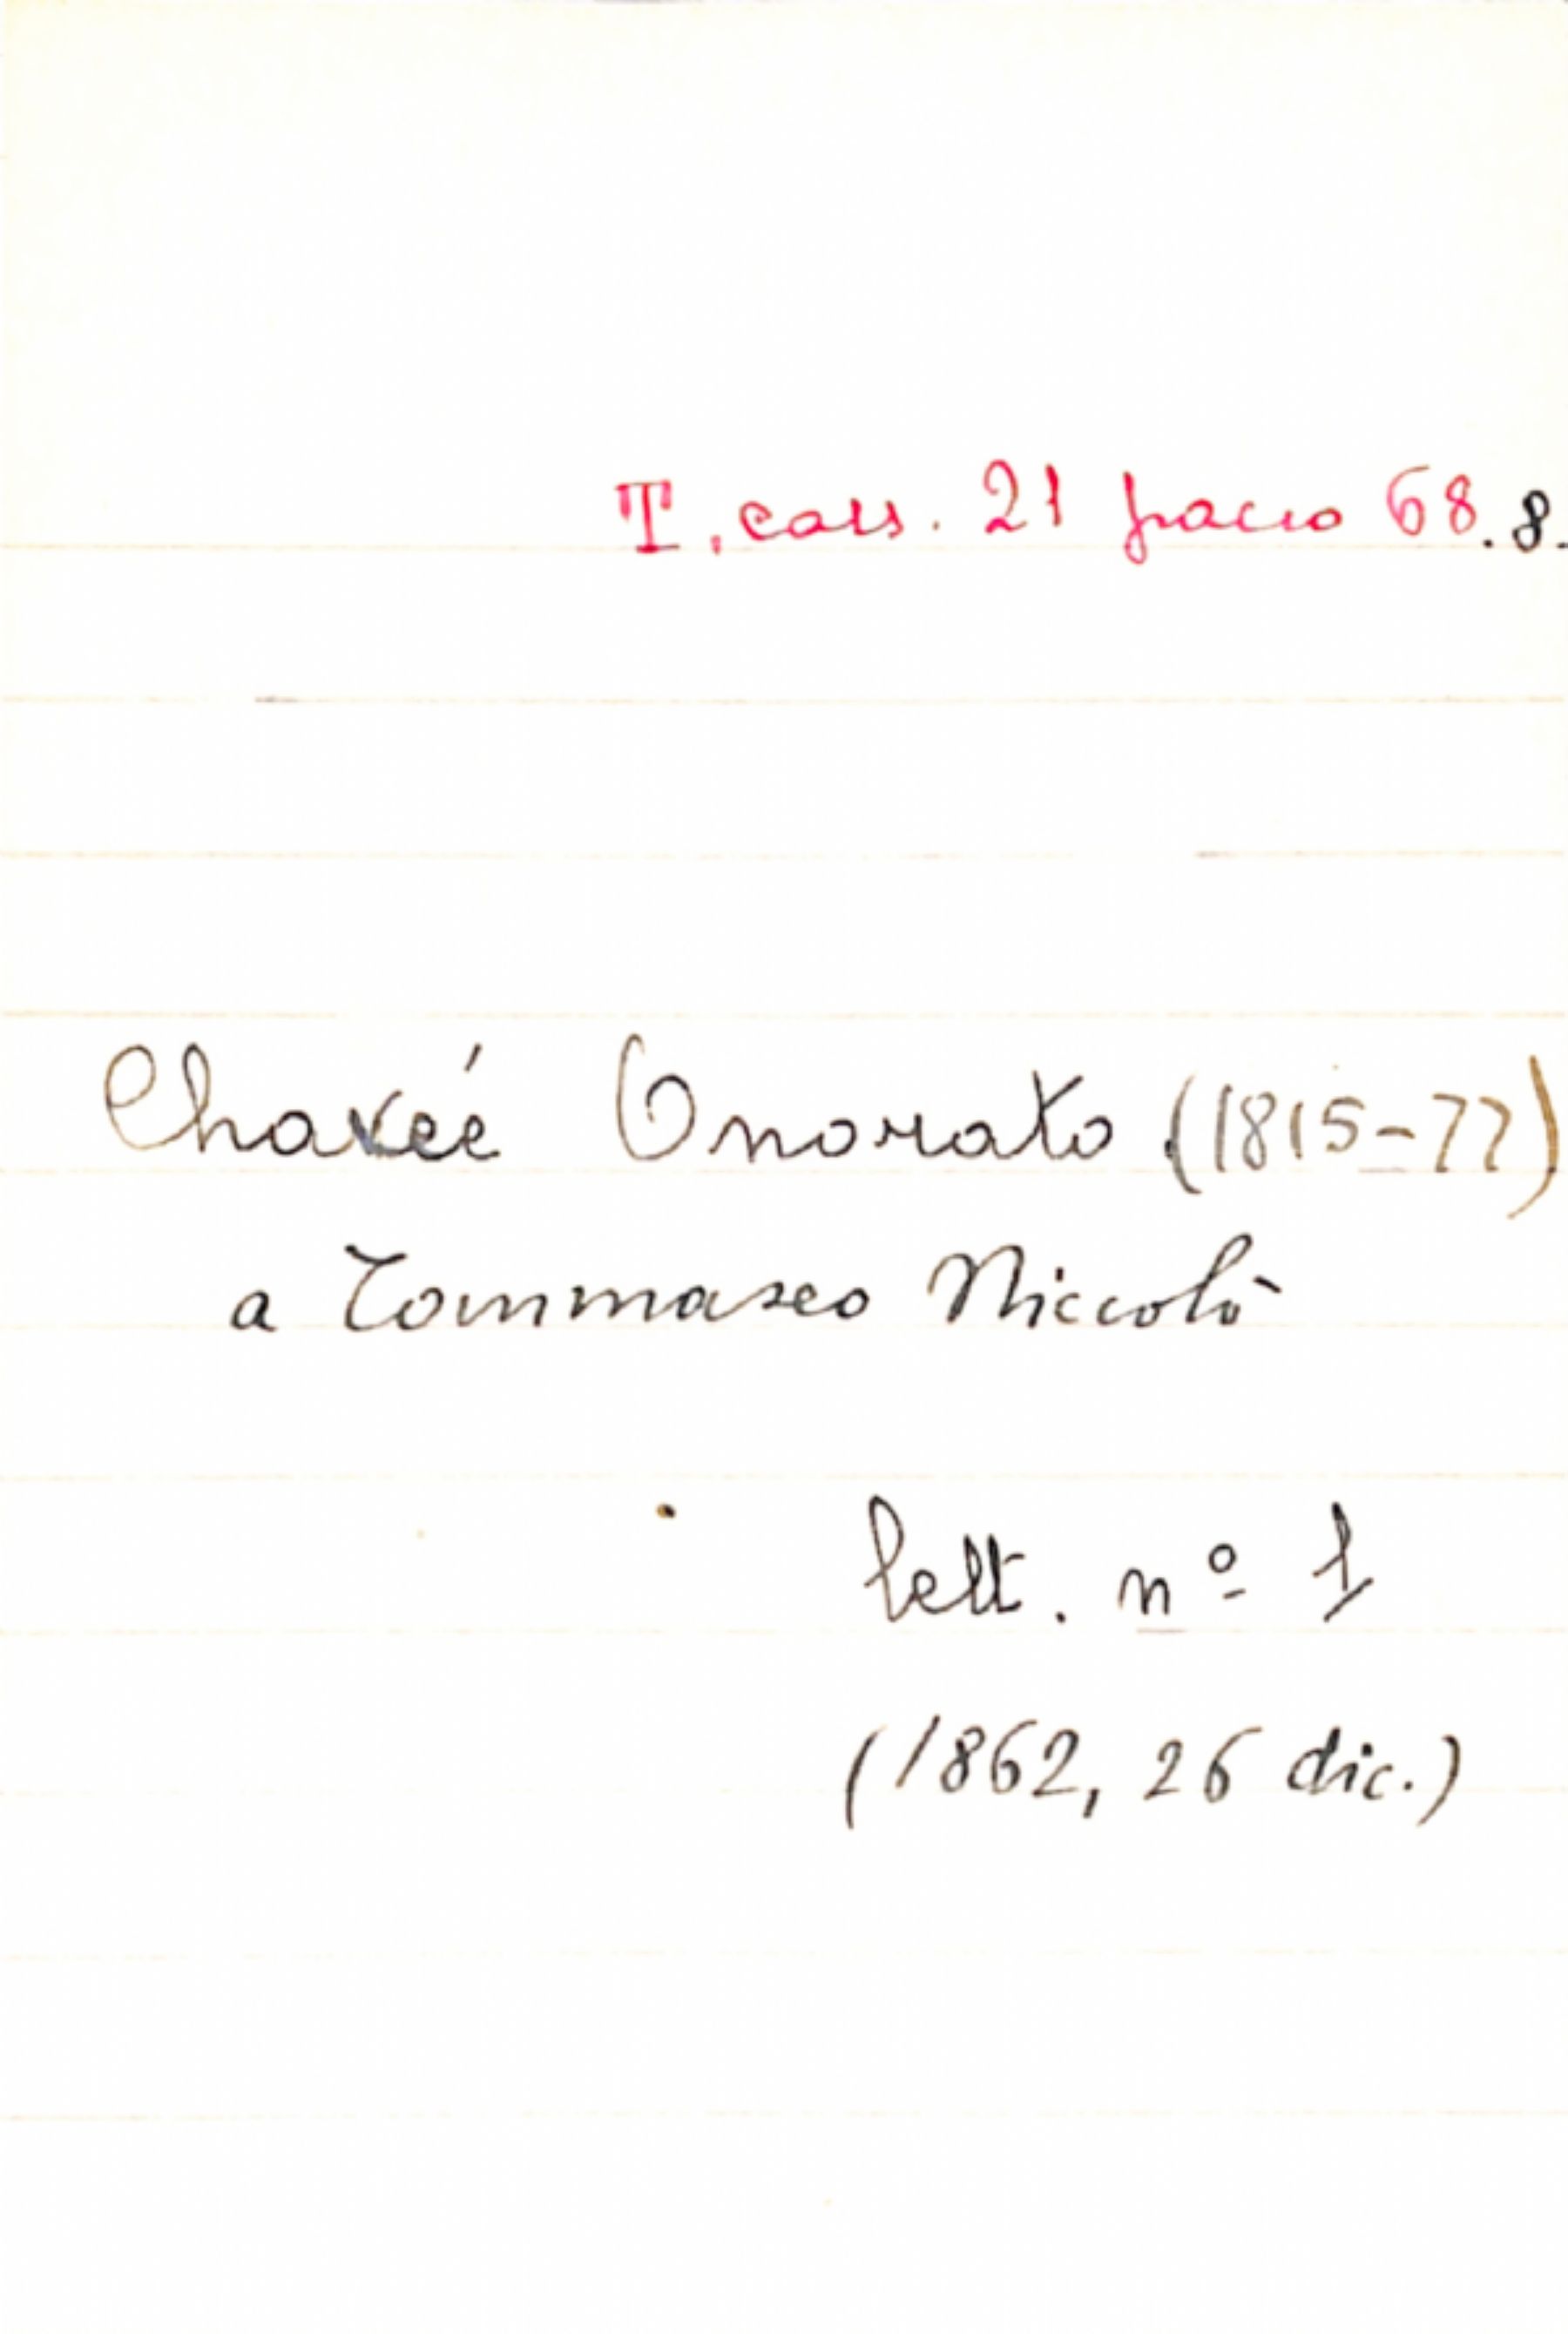 T. cass. 21 pacco 68.8.
Chavée Onorato (1815-77)
a Tommaseo Niccolò
lett. nº 1
(1862, 26 dic.)